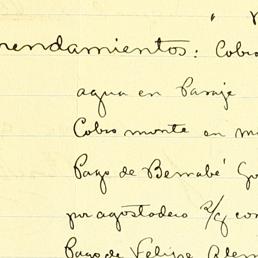 rendamientos: Cobro
agua en Paraje
Cobro monte en
Pago de Bernabé
por agostadero 2/q con
Pago de Felipe